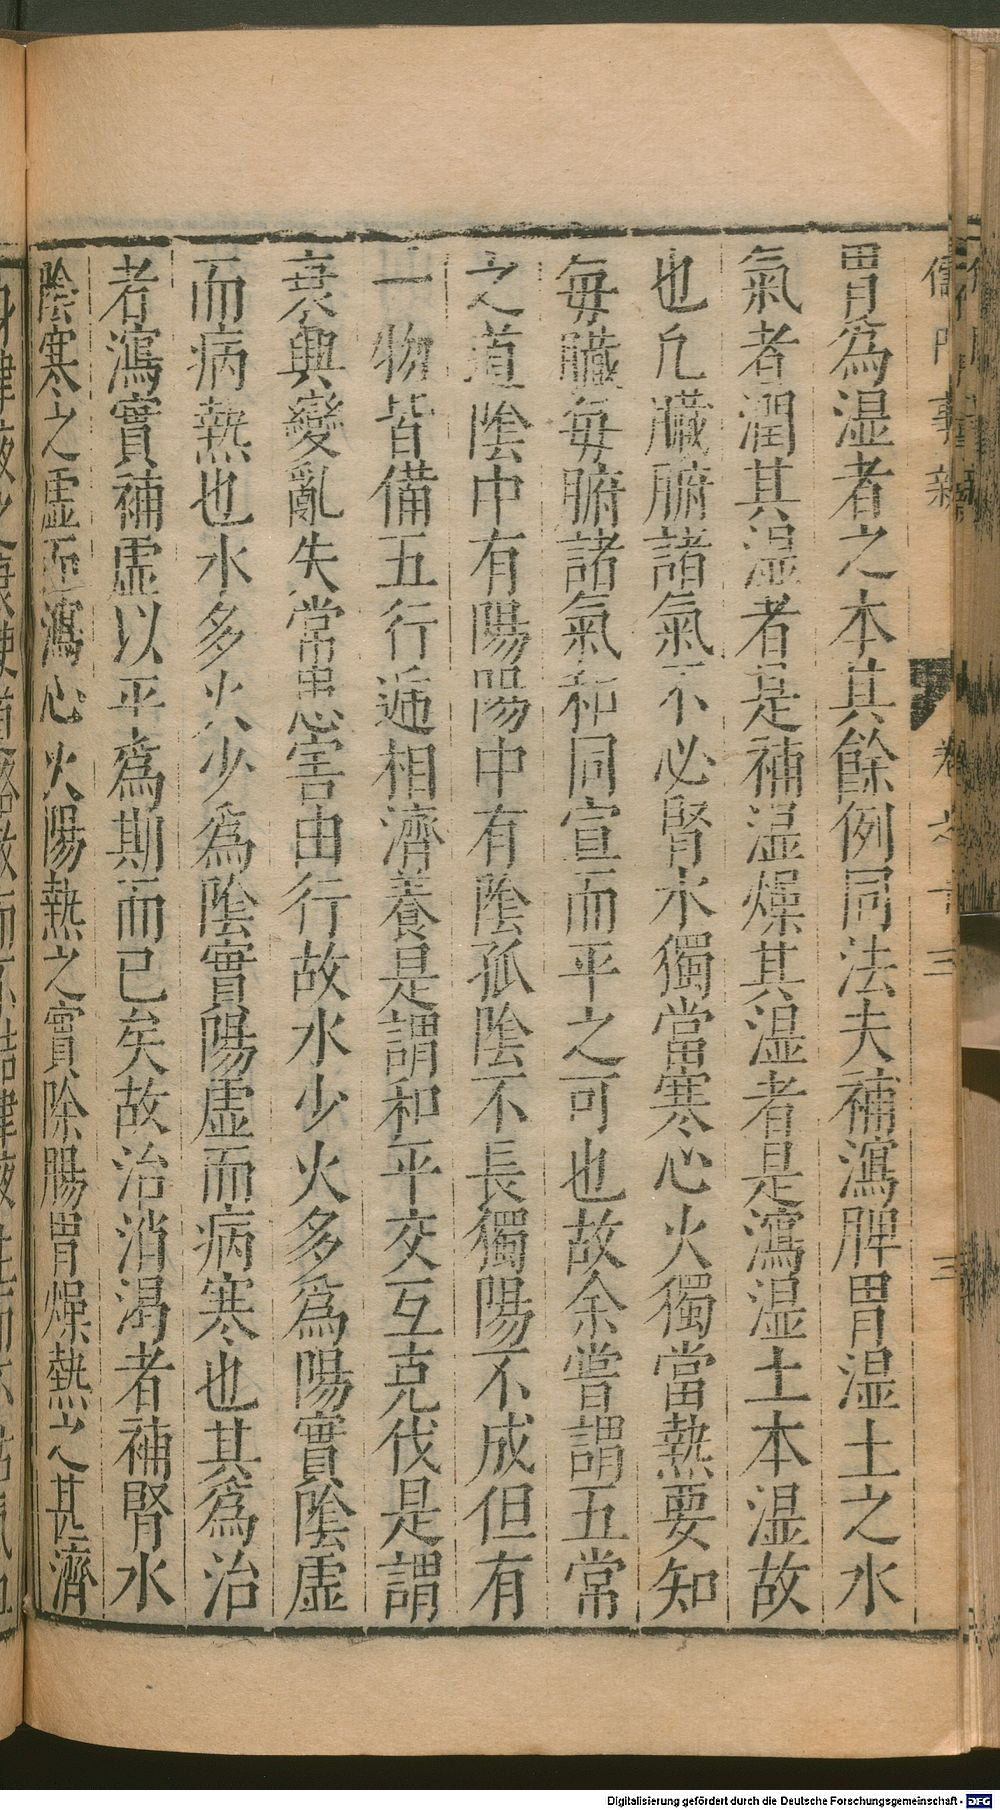 胃爲湿者之本其餘例同法夫補瀉脾胃湿土之水
氣者潤其湿者是補湿燥其湿者是瀉湿土本湿故
也凡臟腑諸氣不必腎水獨當寒心火獨當熱要知
每臟每腑諸氣和同宣而平之可也故余嘗謂五常
之道陰中有陽陽中有陰孤陰不長獨陽不成但有
一物皆備五行遞相濟養是謂和平交互克伐是謂
衰興變亂失常患害由行故水少火多爲陽實陰虛
而病熱也水多火少爲陰實陽虛而病寒也其爲治
者瀉實補虛以平爲期而已矣故治消渴者補腎水
陰寒之虛而瀉心火陽熱之實除腸胃燥熱之甚濟
儒門事親 卷之十三 三
Digitalisierung gefördert durch die Deutsche Forschungsgemeinschaft - DFG